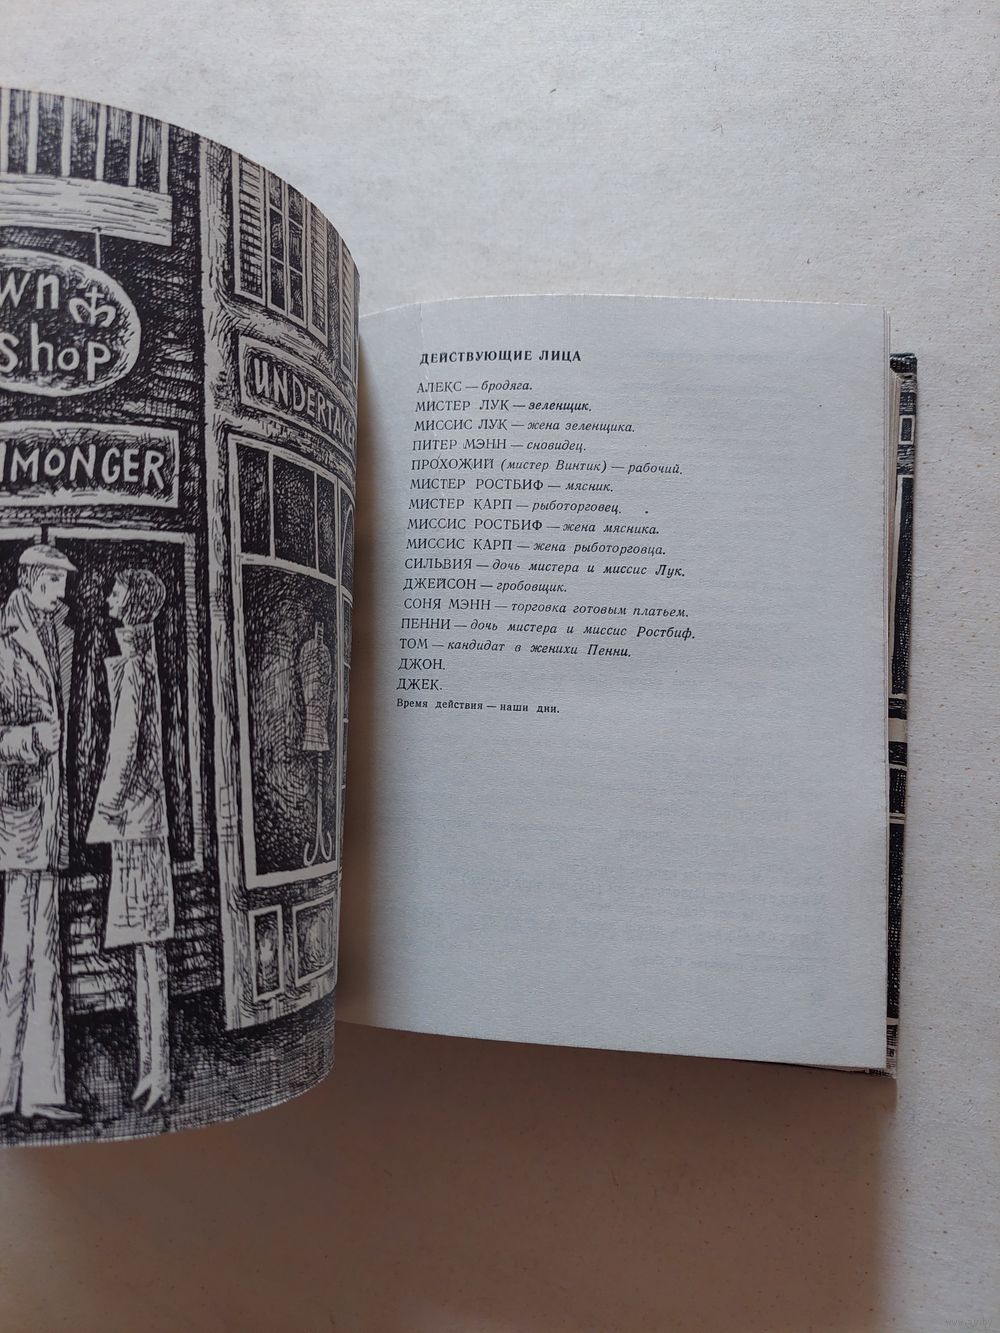 wn
shop
MONGER
UNDERTAKE
ДЕЙСТВУЮЩИЕ ЛИЦА
АЛЕКС — бродяга.
МИСТЕР ЛУК — зеленщик.
МИССИС ЛУК — жена зеленщика.
ПИТЕР МЭНН — сновидец.
ПРОХОЖИЙ (мистер Винтик) — рабочий.
МИСТЕР РОСТБИФ — мясник.
МИСТЕР КАРП — рыботорговец.
МИССИС РОСТБИФ — жена мясника.
МИССИС КАРП — жена рыботорговца.
СИЛЬВИЯ — дочь мистера и миссис Лук.
ДЖЕЙСОН — гробовщик.
СОНЯ МЭНН — торговка готовым платьем.
ПЕННИ — дочь мистера и миссис Ростбиф.
ТОМ — кандидат в женихи Пенни.
ДЖОН.
ДЖЕК.
Время действия — наши дни.